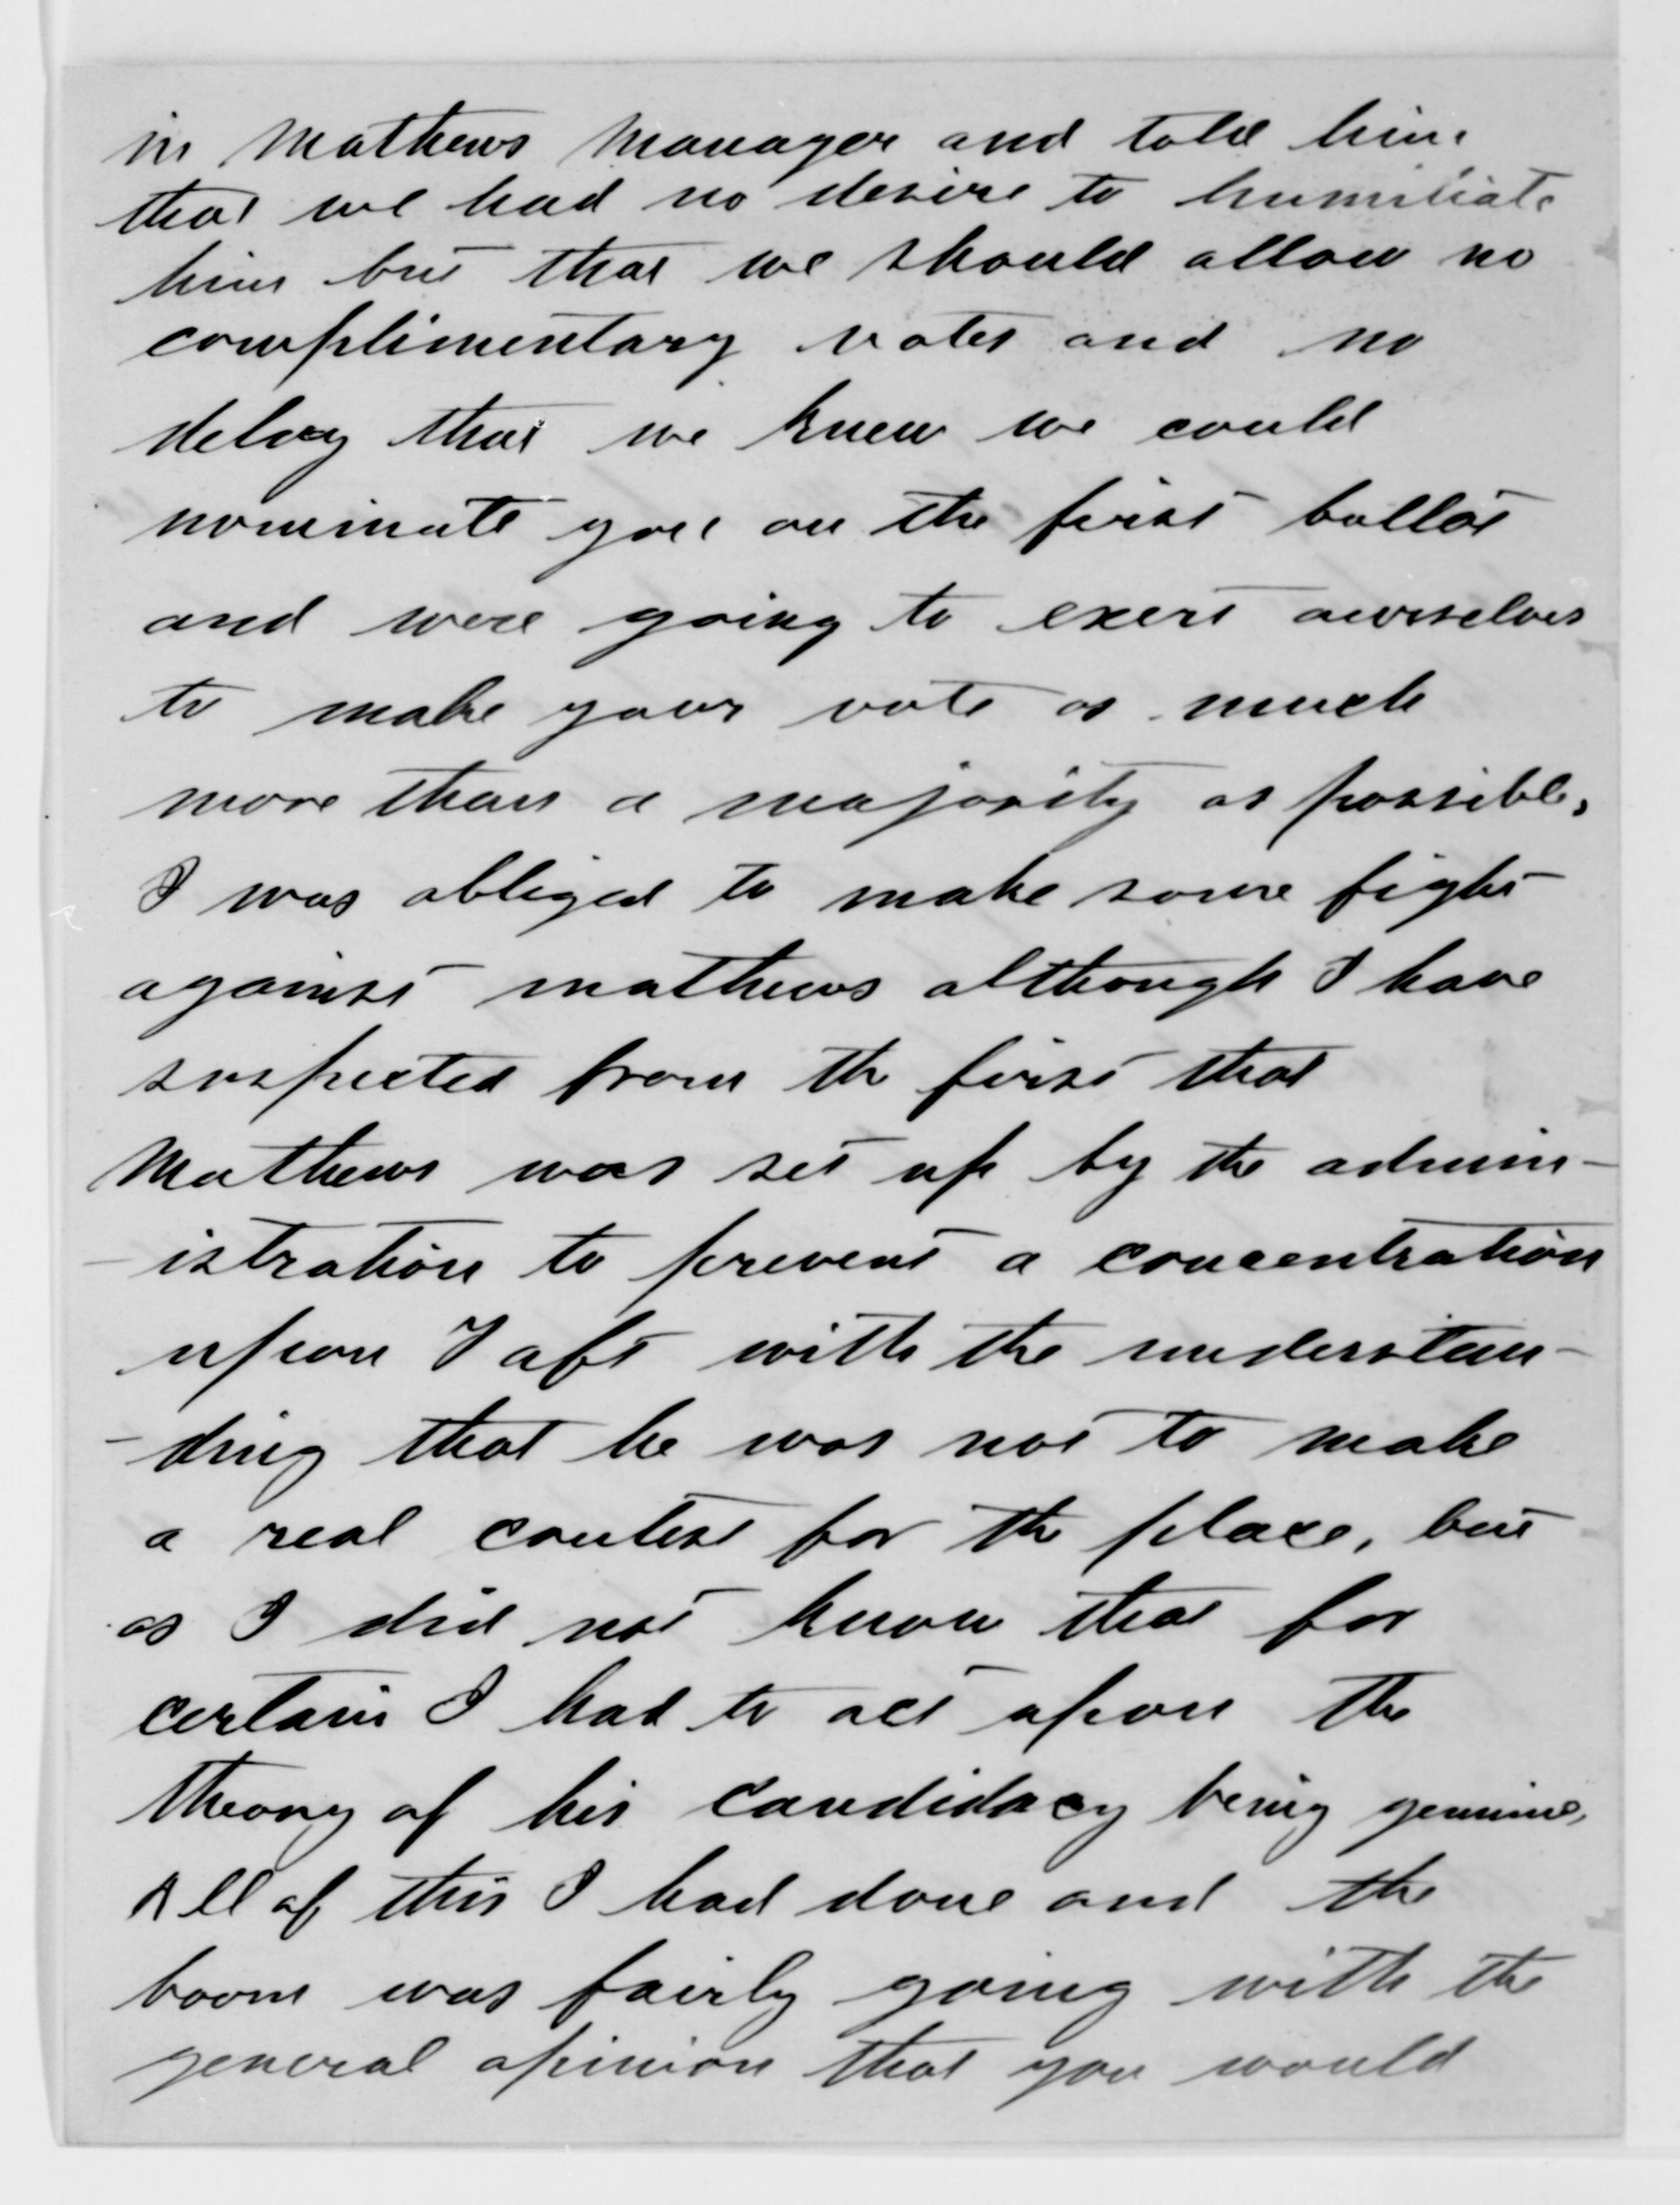 in Mathews manager and told him
that we had no desire to humiliate
him but that we should allow no
complimentary votes and no
delay that we knew we could
nominate you on the first ballot
and were going to exert ourselves
to make your vote as much
more than a majority as possible.
I was obliged to make some fight
against mathews although I have
suspected from the first that
Mathews was set up by the admin-
-istration to prevent a concentration
upon Taft with the understan-
-ding that he was not to make
a real contest for the place, but
as I did not know that for
certain I had to act upon the
theory of his candidacy being genuine,
All of this I had done and the
boom was fairly going with the
general opinion that you would